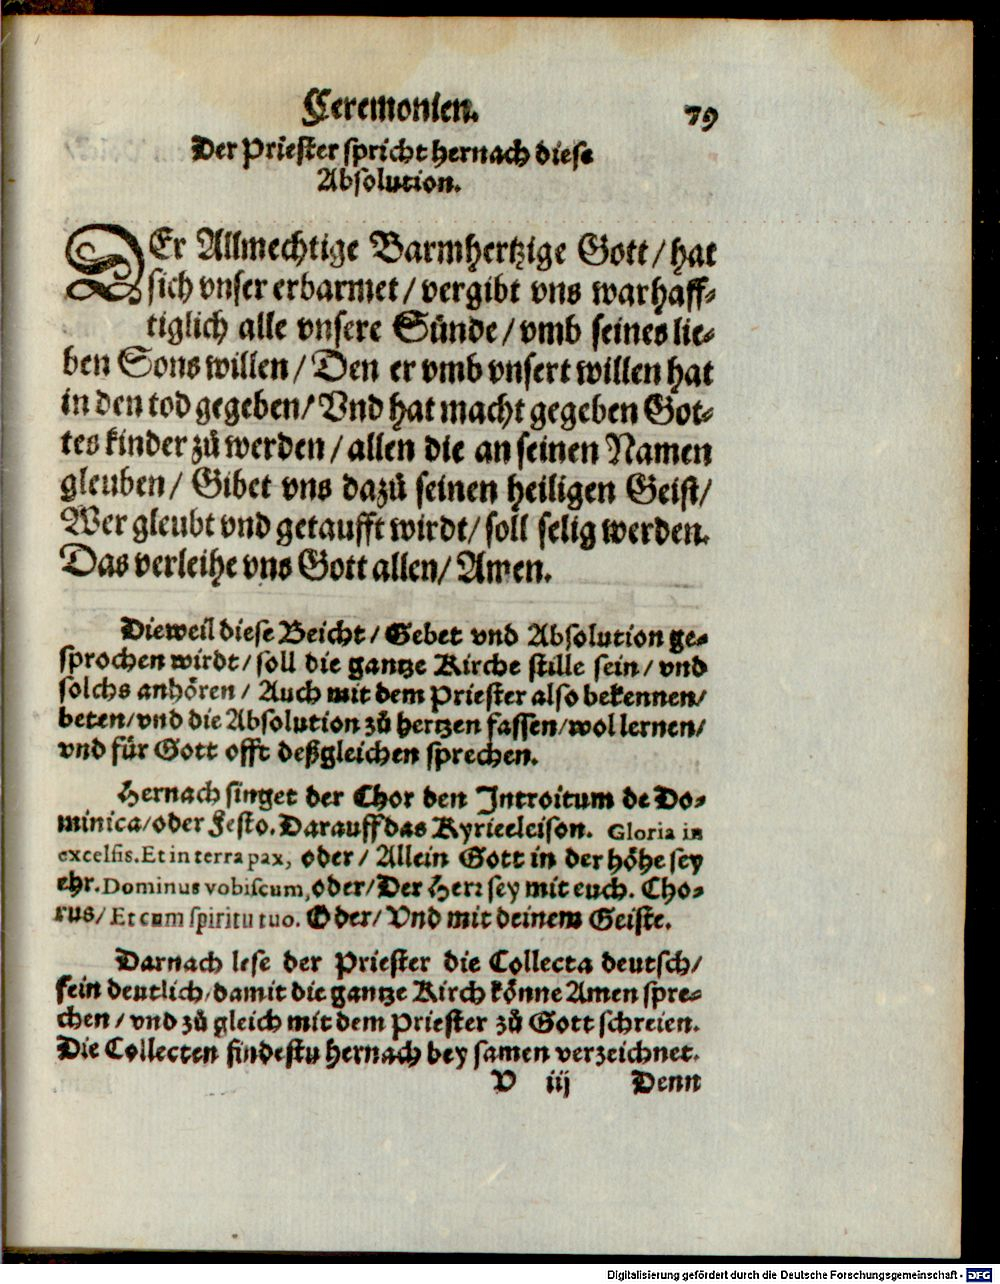 Ceremonien. 79
Der Priester spricht hernach diese
Absolution.
DEr Allmechtige Barmhertzige Gott / hat
sich vnser erbarmet / vergibt vns warhaff-
tiglich alle vnsere Sünde / vmb seines lie-
ben Sons willen / Den er vmb vnsert willen hat
in den tod gegeben / Vnd hat macht gegeben Got-
tes kinder zů werden / allen die an seinen Namen
gleuben / Gibet vns dazů seinen heiligen Geist /
Wer gleubt vnd getaufft wirdt / soll selig werden.
Das verleihe vns Gott allen / Amen.
Dieweil diese Beicht / Gebet vnd Absolution ge-
sprochen wirdt / soll die gantze Kirche stille sein / vnd
solchs anhören / Auch mit dem Priester also bekennen /
beten / vnd die Absolution zů hertzen fassen / wol lernen /
vnd für Gott offt deßgleichen sprechen.
Hernach singet der Chor den Introitum de Do-
minica / oder Festo. Darauff das Kyrieeleison. Gloria in
excelsis. Et in terra pax, oder / Allein Gott in der höhe sey
ehr. Dominus vobiscum, oder / Der Herr sey mit euch. Cho-
rus / Et cum spiritu tuo. Oder / Vnd mit deinem Geiste.
Darnach lese der Priester die Collecta deutsch /
fein deutlich / damit die gantze Kirch könne Amen spre-
chen / vnd zů gleich mit dem Priester zů Gott schreien.
Die Collecten findestu hernach bey samen verzeichnet.
V iij Denn
Digitalisierung gefördert durch die Deutsche Forschungsgemeinschaft - DFG